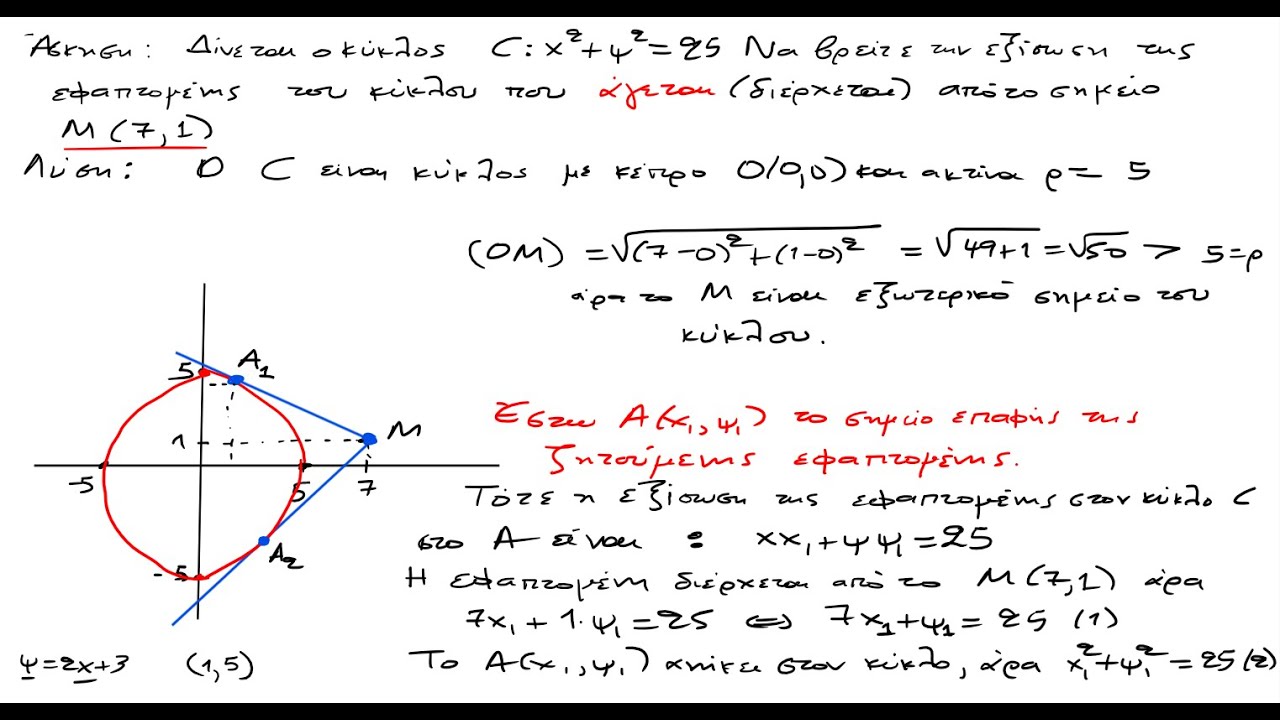 Άσκηση: Δίνεται ο κύκλος C: x²+ψ²=25 Να βρείτε την εξίσωση της
εφαπτομένης του κύκλου που άγεται (διέρχεται) από το σημείο
M(7,1)
Λύση: Ο C είναι κύκλος με κέντρο O(0,0) και ακτίνα ρ= 5
(OM) = √((7-0)²+(1-0)²) = √(49+1) = √50 > 5=ρ
άρα το M είναι εξωτερικό σημείο του
κύκλου.
5 A₁
1 M
-5 5 7
-5 A₂
Έστω A(x₁,ψ₁) το σημείο επαφής της
ζητούμενης εφαπτομένης.
Τότε η εξίσωση της εφαπτομένης στον κύκλο C
στο A είναι : xx₁+ψψ₁=25
Η εφαπτομένη διέρχεται από το M(7,1) άρα
7x₁+1·ψ₁=25 ⇔ 7x₁+ψ₁=25 (1)
Το A(x₁,ψ₁) ανήκει στον κύκλο, άρα x₁²+ψ₁²=25 (2)
ψ=2x+3 (1,5)